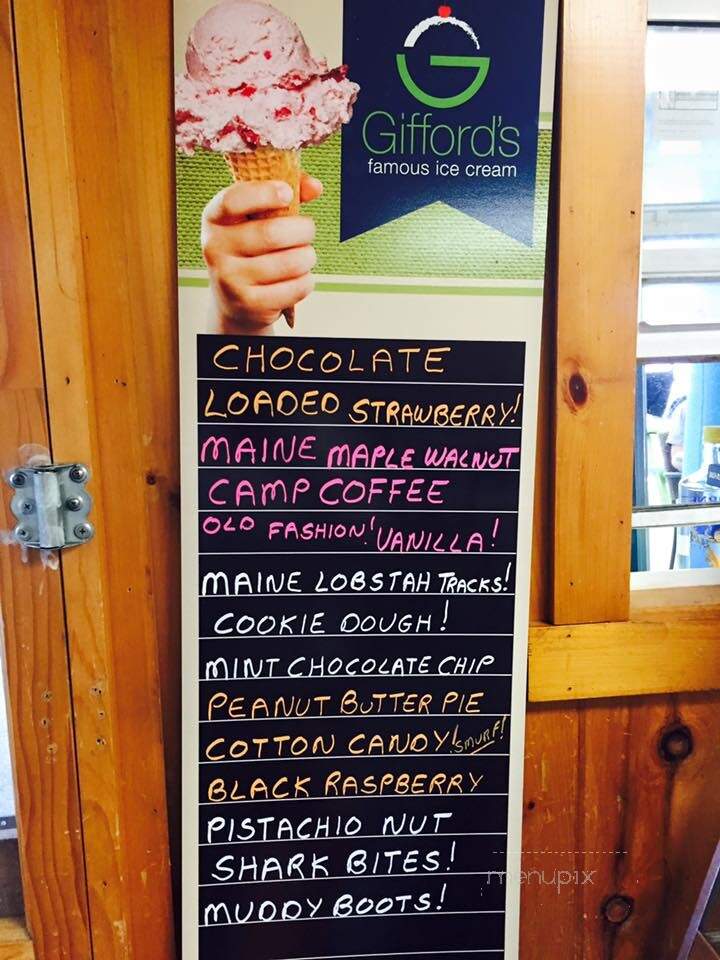 Gifford's
famous ice cream
CHOCOLATE
LOADED STRAWBERRY!
MAINE MAPLE WALNUT
CAMP COFFEE
OLD FASHION! VANILLA!
MAINE LOBSTAH TRACKS!
COOKIE DOUGH!
MINT CHOCOLATE CHIP
PEANUT BUTTER PIE
COTTON CANDY! SMURF!
BLACK RASPBERRY
PISTACHIO NUT
SHARK BITES!
MUDDY BOOTS!
menupix